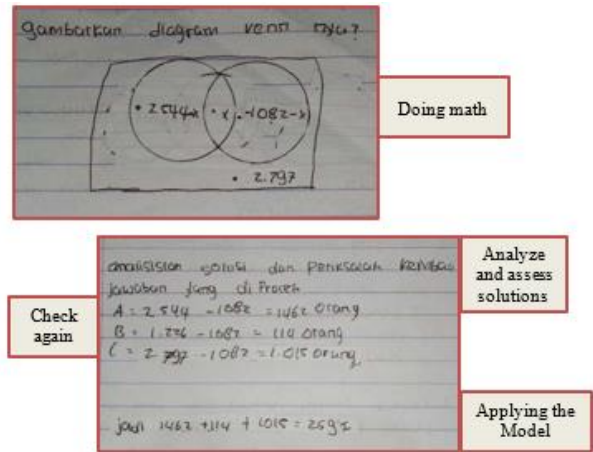 gambarkan diagram venn nya?
• 2544-x • x • -1082-x
• 2.797
Doing math
analisislah solusi dan periksalah kembali
jawaban yang di Proleh
A = 2.544 - 1082 = 1462 Orang
B = 1.226 - 1082 = 114 orang
C = 2.797 - 1082 = 1.015 orang
jadi 1462 + 114 + 1015 = 2591
Analyze
and assess
solutions
Check
again
Applying the
Model